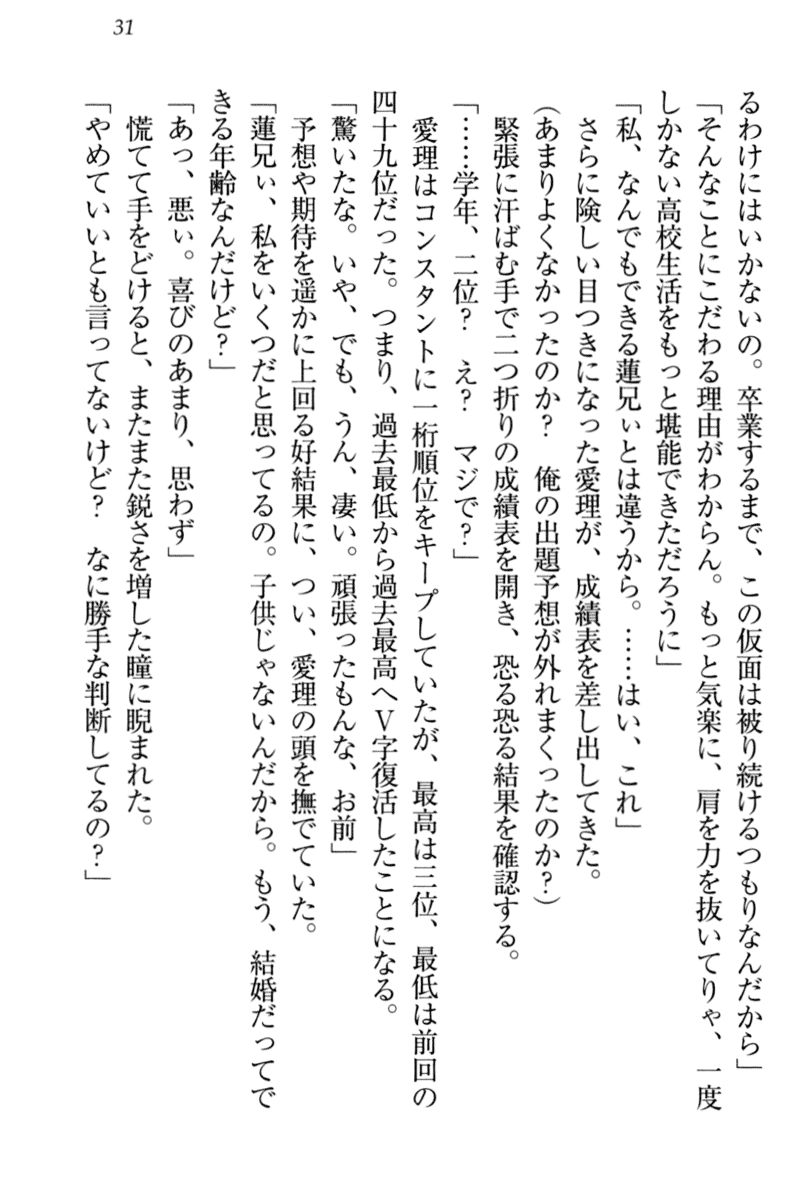 31
るわけにはいかないの。卒業するまで、この仮面は被り続けるつもりなんだから」
「そんなことにこだわる理由がわからん。もっと気楽に、肩を力を抜いてりゃ、一度
しかない高校生活をもっと堪能できただろうに」
「私、なんでもできる蓮兄ぃとは違うから。……はい、これ」
さらに険しい目つきになった愛理が、成績表を差し出してきた。
（あまりよくなかったのか？　俺の出題予想が外れまくったのか？）
緊張に汗ばむ手で二つ折りの成績表を開き、恐る恐る結果を確認する。
「……学年、二位？　え？　マジで？」
愛理はコンスタントに一桁順位をキープしていたが、最高は三位、最低は前回の
四十九位だった。つまり、過去最低から過去最高へＶ字復活したことになる。
「驚いたな。いや、でも、うん、凄い。頑張ったもんな、お前」
予想や期待を遥かに上回る好結果に、つい、愛理の頭を撫でていた。
「蓮兄ぃ、私をいくつだと思ってるの。子供じゃないんだから。もう、結婚だってで
きる年齢なんだけど？」
「あっ、悪ぃ。喜びのあまり、思わず」
慌てて手をどけると、またまた鋭さを増した瞳に睨まれた。
「やめていいとも言ってないけど？　なに勝手な判断してるの？」